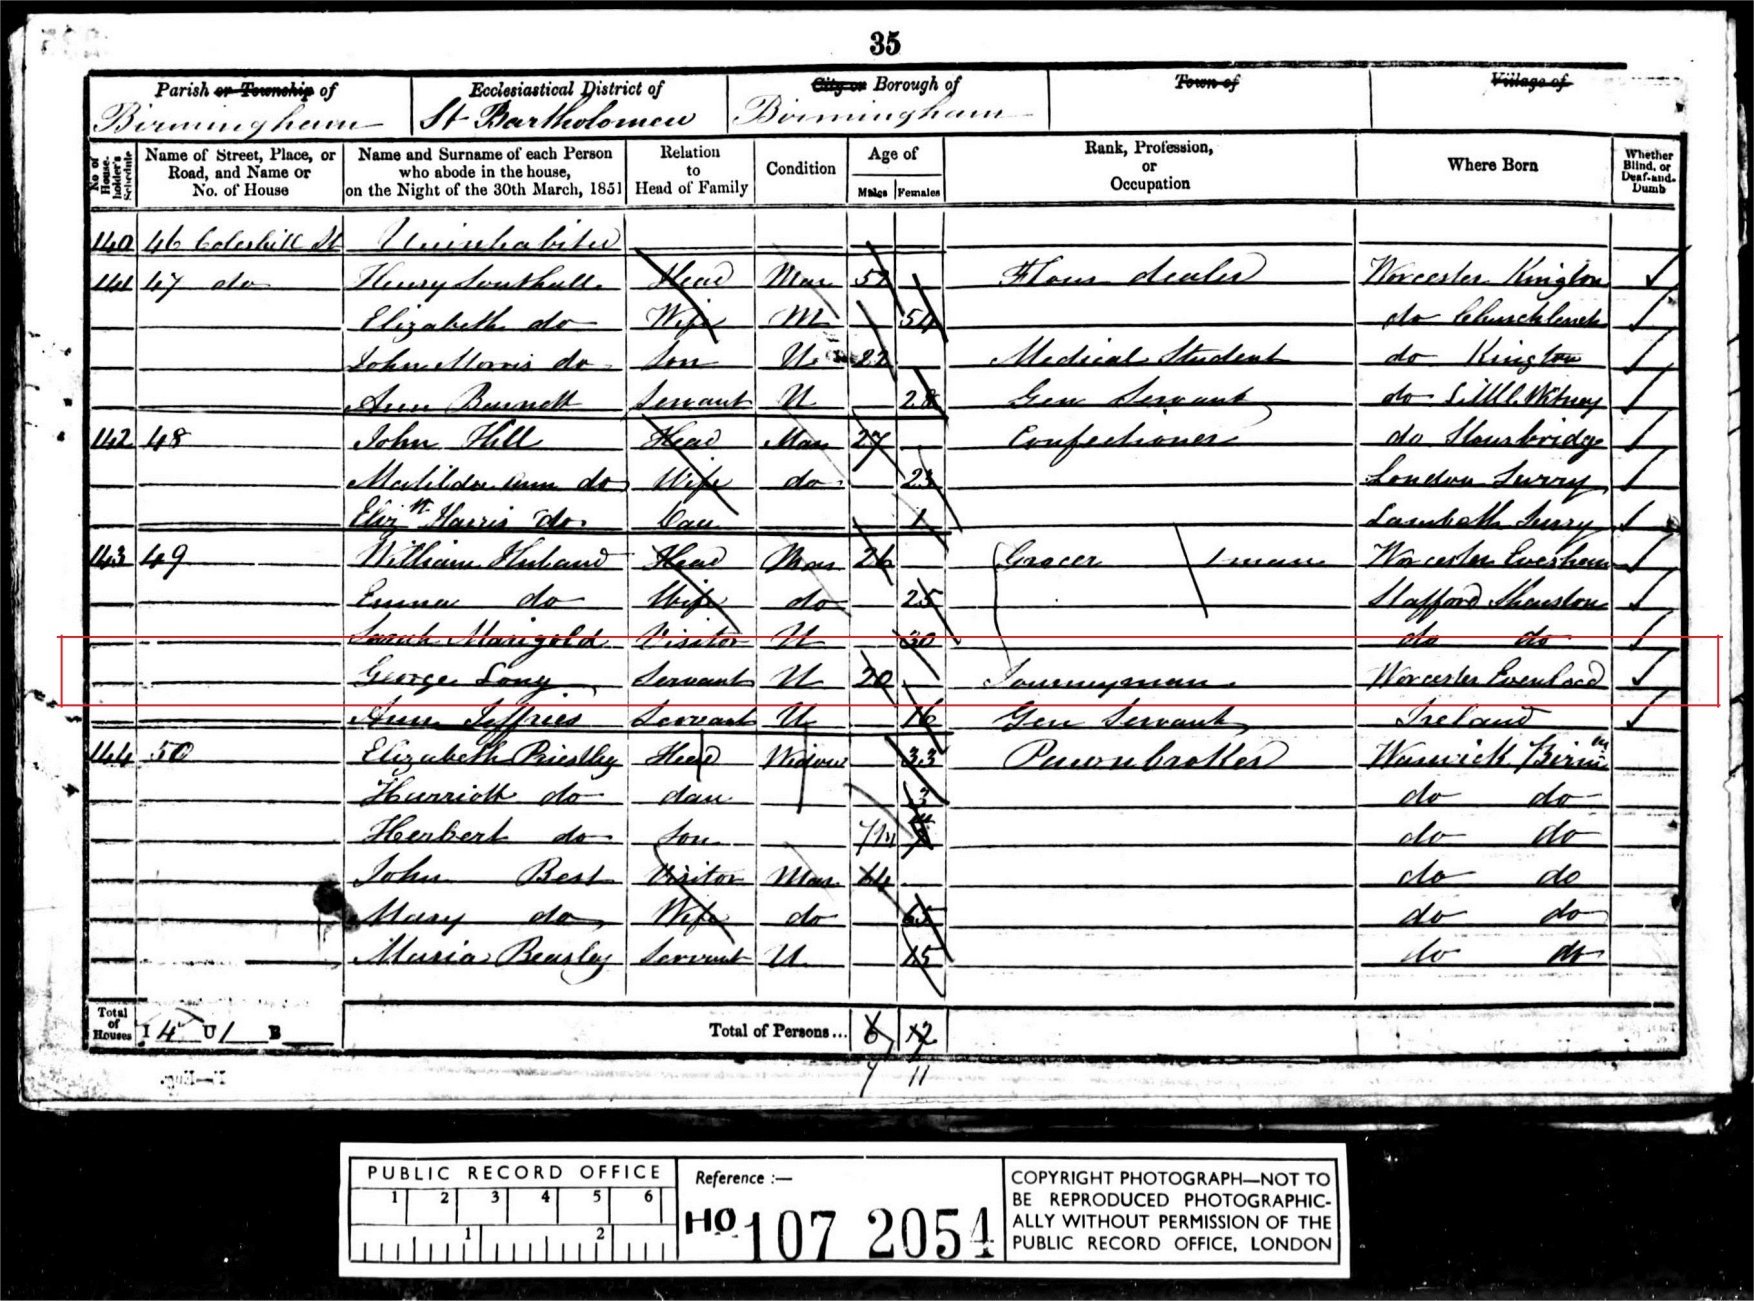 35
Parish or Township of Ecclesiastical District of City or Borough of Town of Village of
Birmingham St Bartholomew Birmingham
No of House-holder's Schedule Name of Street, Place, or Road, and Name or No. of House Name and Surname of each Person who abode in the house, on the Night of the 30th March, 1851 Relation to Head of Family Condition Age of Males Females Rank, Profession, or Occupation Where Born Whether Blind, or Deaf-and-Dumb
140 46 Coleshill St Uninhabited
141 47 do Henry Southall Head Mar 52 Flour dealer Worcester Kington
Elizabeth do Wife M 54 do Churchlench
John Morris do Son U 22 Medical Student do Kington
Ann Barnett Servant U 28 Gen Servant do Little Witney
142 48 John Hill Head Mar 27 Confectioner do Stourbridge
Matilda Ann do Wife do 23 London Surry
Elizth Harris do Dau 1 Lambeth Surry
143 49 William Huband Head Mar 26 Grocer 1 man Worcester Evesham
Emma do Wife do 25 Stafford Shenston
Sarah Marigold Visitor U 30 do do
George Long Servant U 20 Journeyman Worcester Evenload
Ann Jeffries Servant U 16 Gen Servant Ireland
144 50 Elizabeth Priestley Head Widow 33 Pawnbroker Warwick Birmm
Harriott do dau 3 do do
Herbert do Son 7m do do
John Best Visitor Mar 64 do do
Mary do Wife do 65 do do
Maria Beasley Servant U 15 do do
Total of Houses I 4 U 1 B Total of Persons... 6 12
7 11
PUBLIC RECORD OFFICE
1 2 3 4 5 6
1 2
Reference :—
HO 107 2054
COPYRIGHT PHOTOGRAPH—NOT TO
BE REPRODUCED PHOTOGRAPHIC-
ALLY WITHOUT PERMISSION OF THE
PUBLIC RECORD OFFICE, LONDON